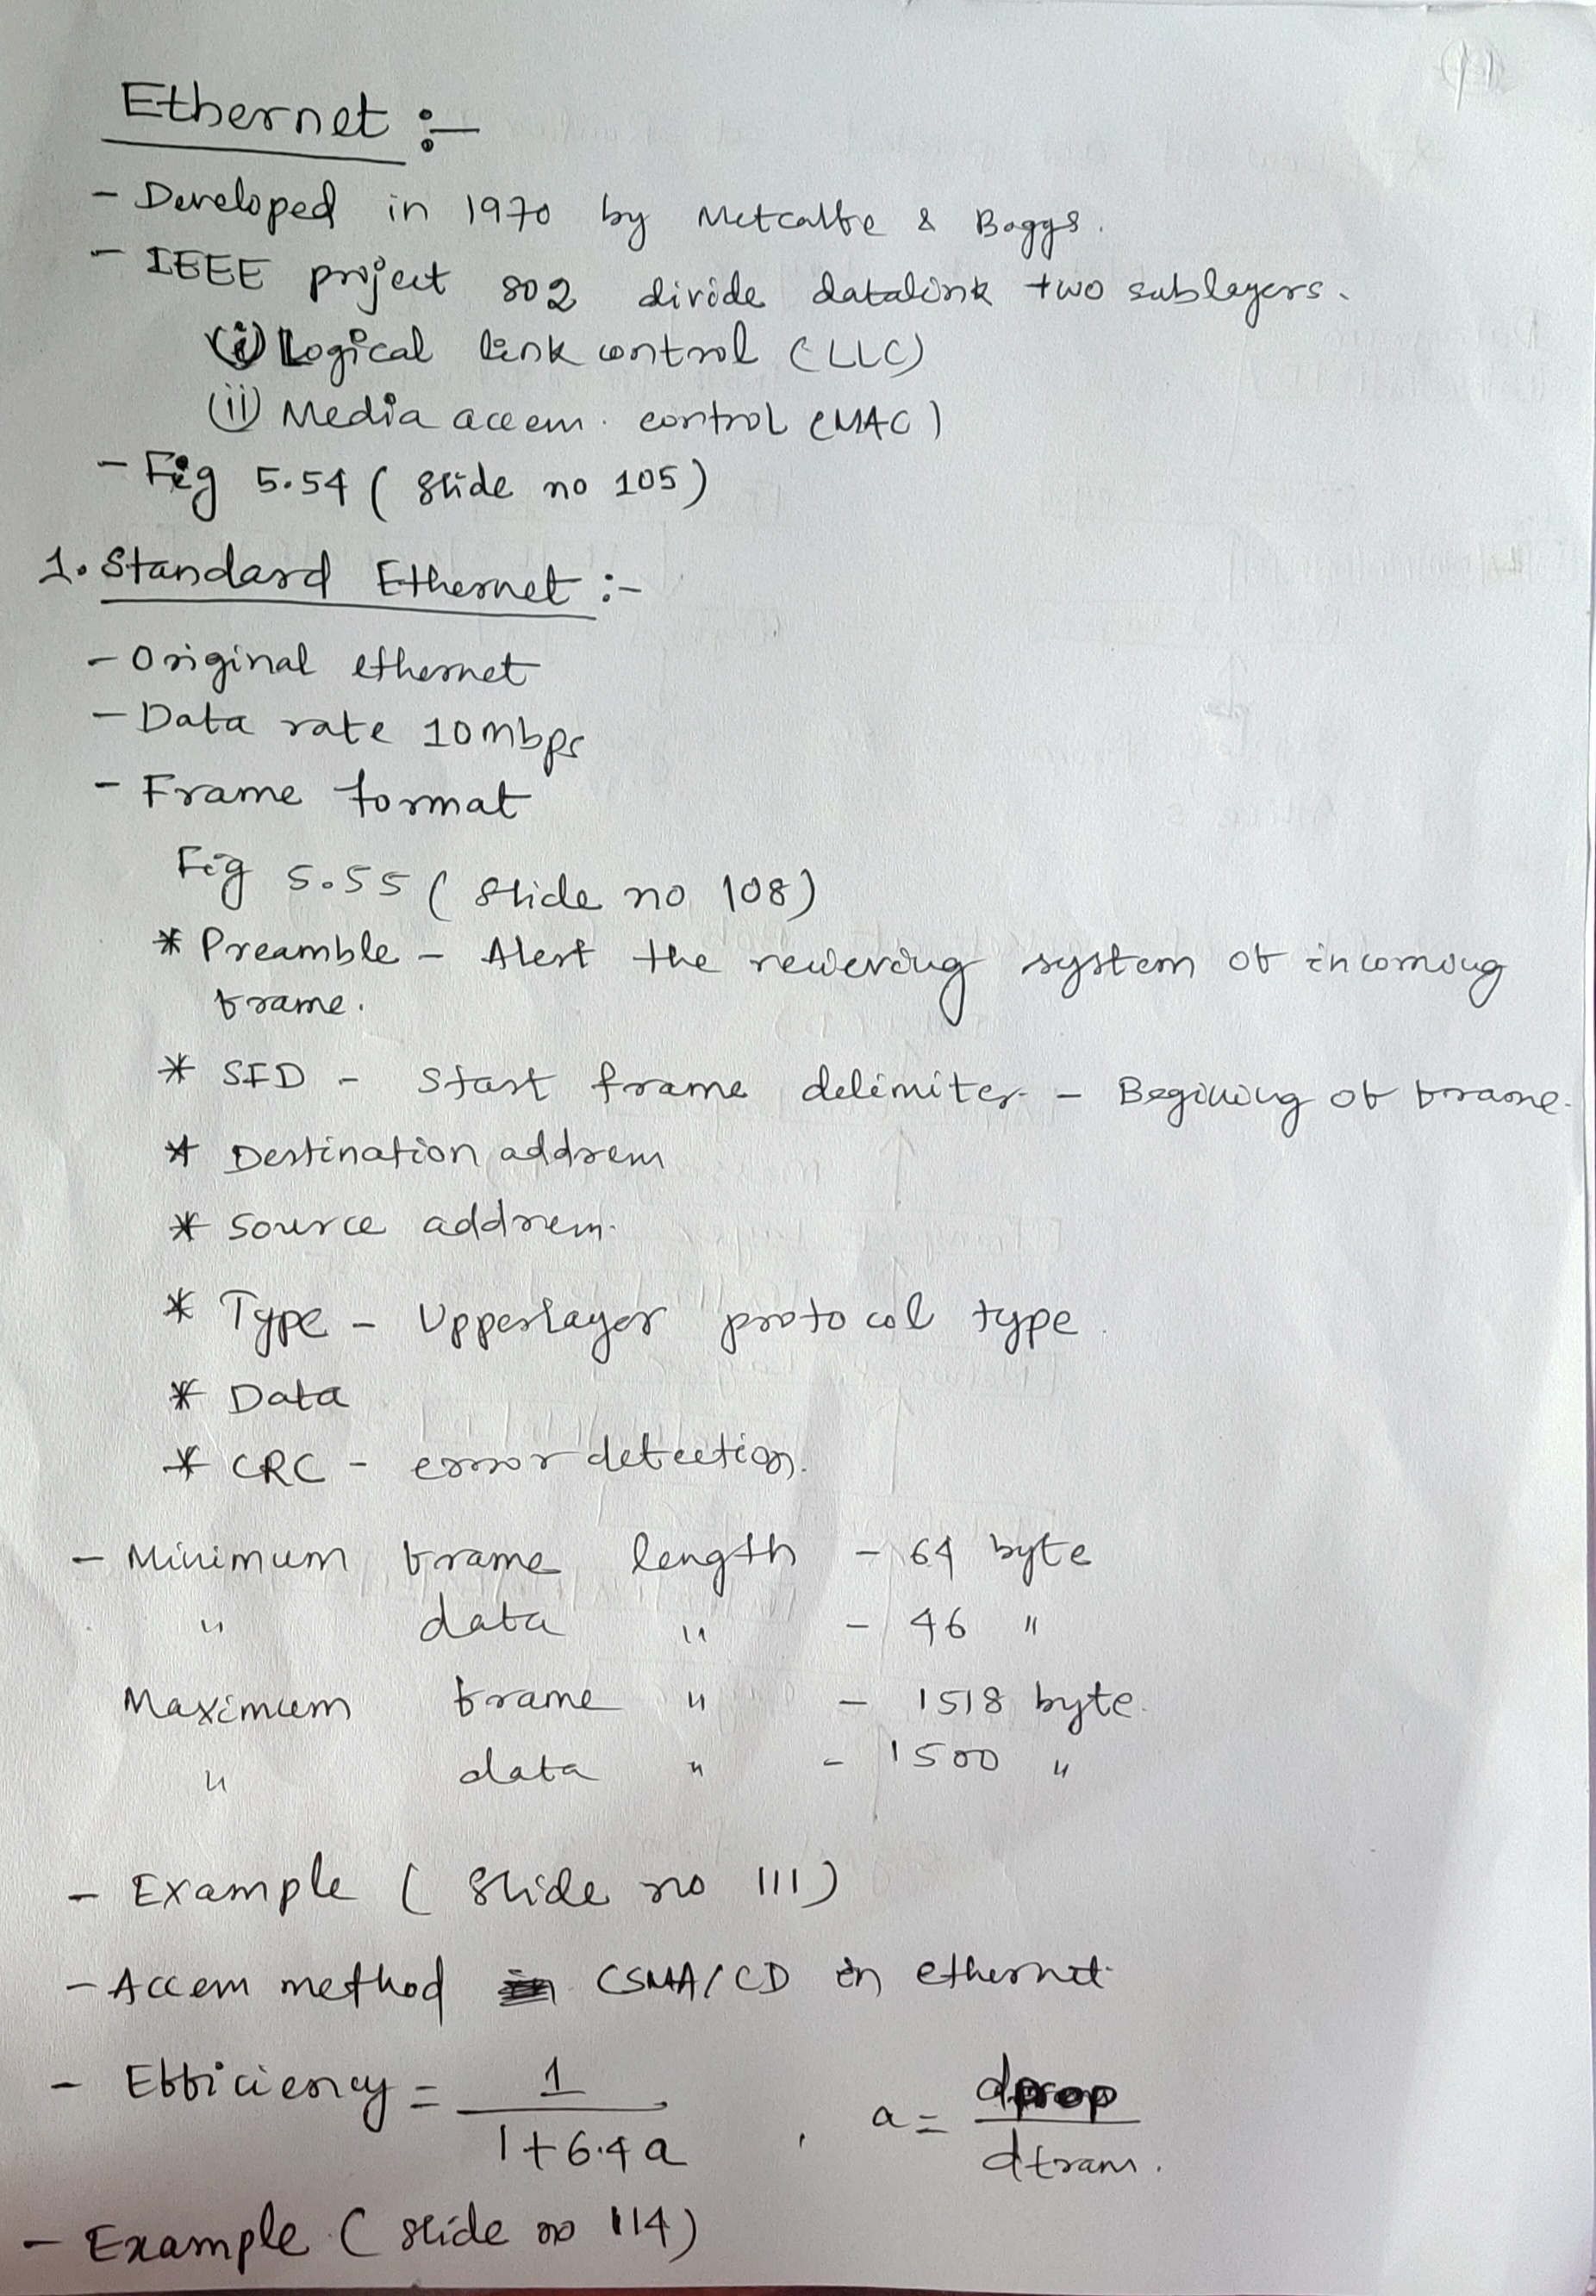 Ethernet :-
- Developed in 1970 by Metcalfe & Boggs.
- IEEE project 802 divide datalink two sublayers.
(i) Logical link control (LLC)
(ii) Media access control (MAC)
- Fig 5.54 ( Slide no 105)
1. Standard Ethernet :-
- Original ethernet
- Data rate 10mbps
- Frame format
Fig 5.55 ( Slide no 108)
* Preamble - Alert the receiving system of incoming
frame.
* SFD - Start frame delimiter - Begining of frame.
* Destination address
* Source address.
* Type - Upperlayer protocol type.
* Data
* CRC - error detection.
- Minimum frame length - 64 byte
" data " - 46 "
Maximum frame " - 1518 byte.
" data " - 1500 "
- Example ( Slide no 111)
- Access method CSMA/CD in ethernet.
- Efficiency = 1 / 1+6.4a , a = dprop / dtrans.
- Example ( Slide no 114)